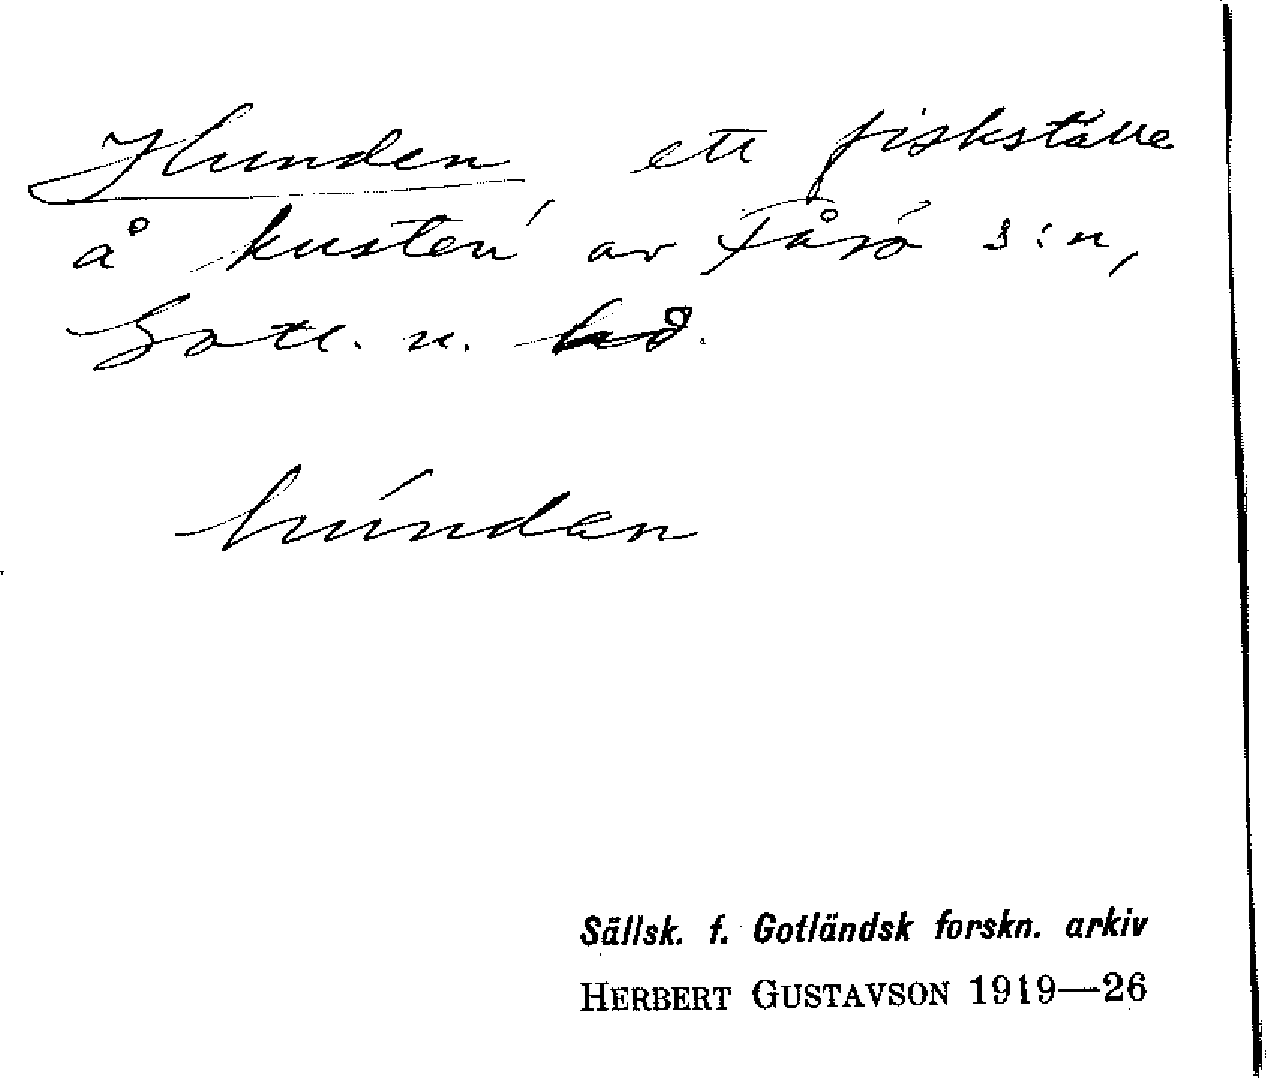 Hunden, ett fiskställe
å kusten av Fårö s:n,
Gotl. n. hd.
húndan
Sällsk. f. Gotländsk forskn. arkiv
HERBERT GUSTAVSON 1919—26